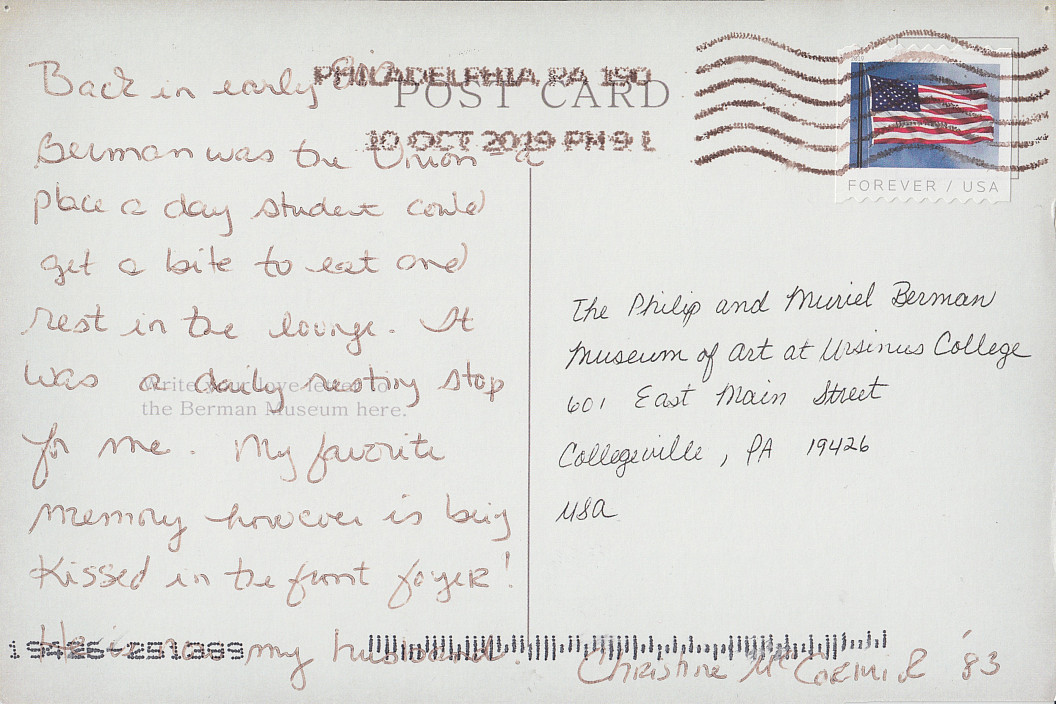 PHILADELPHIA PA 190
10 OCT 2019 PM 9 L
POST CARD
FOREVER / USA
Back in early
Berman was the Union - a
place a day student could
get a bite to eat and
rest in the lounge. It
was a daily resting stop
for me. My favorite
memory however is being
Kissed in the front foyer!
He is now my husband.
Christine McCormick '83
Write your love letter to
the Berman Museum here.
The Philip and Muriel Berman
Museum of Art at Ursinus College
601 East Main Street
Collegeville, PA 19426
USA